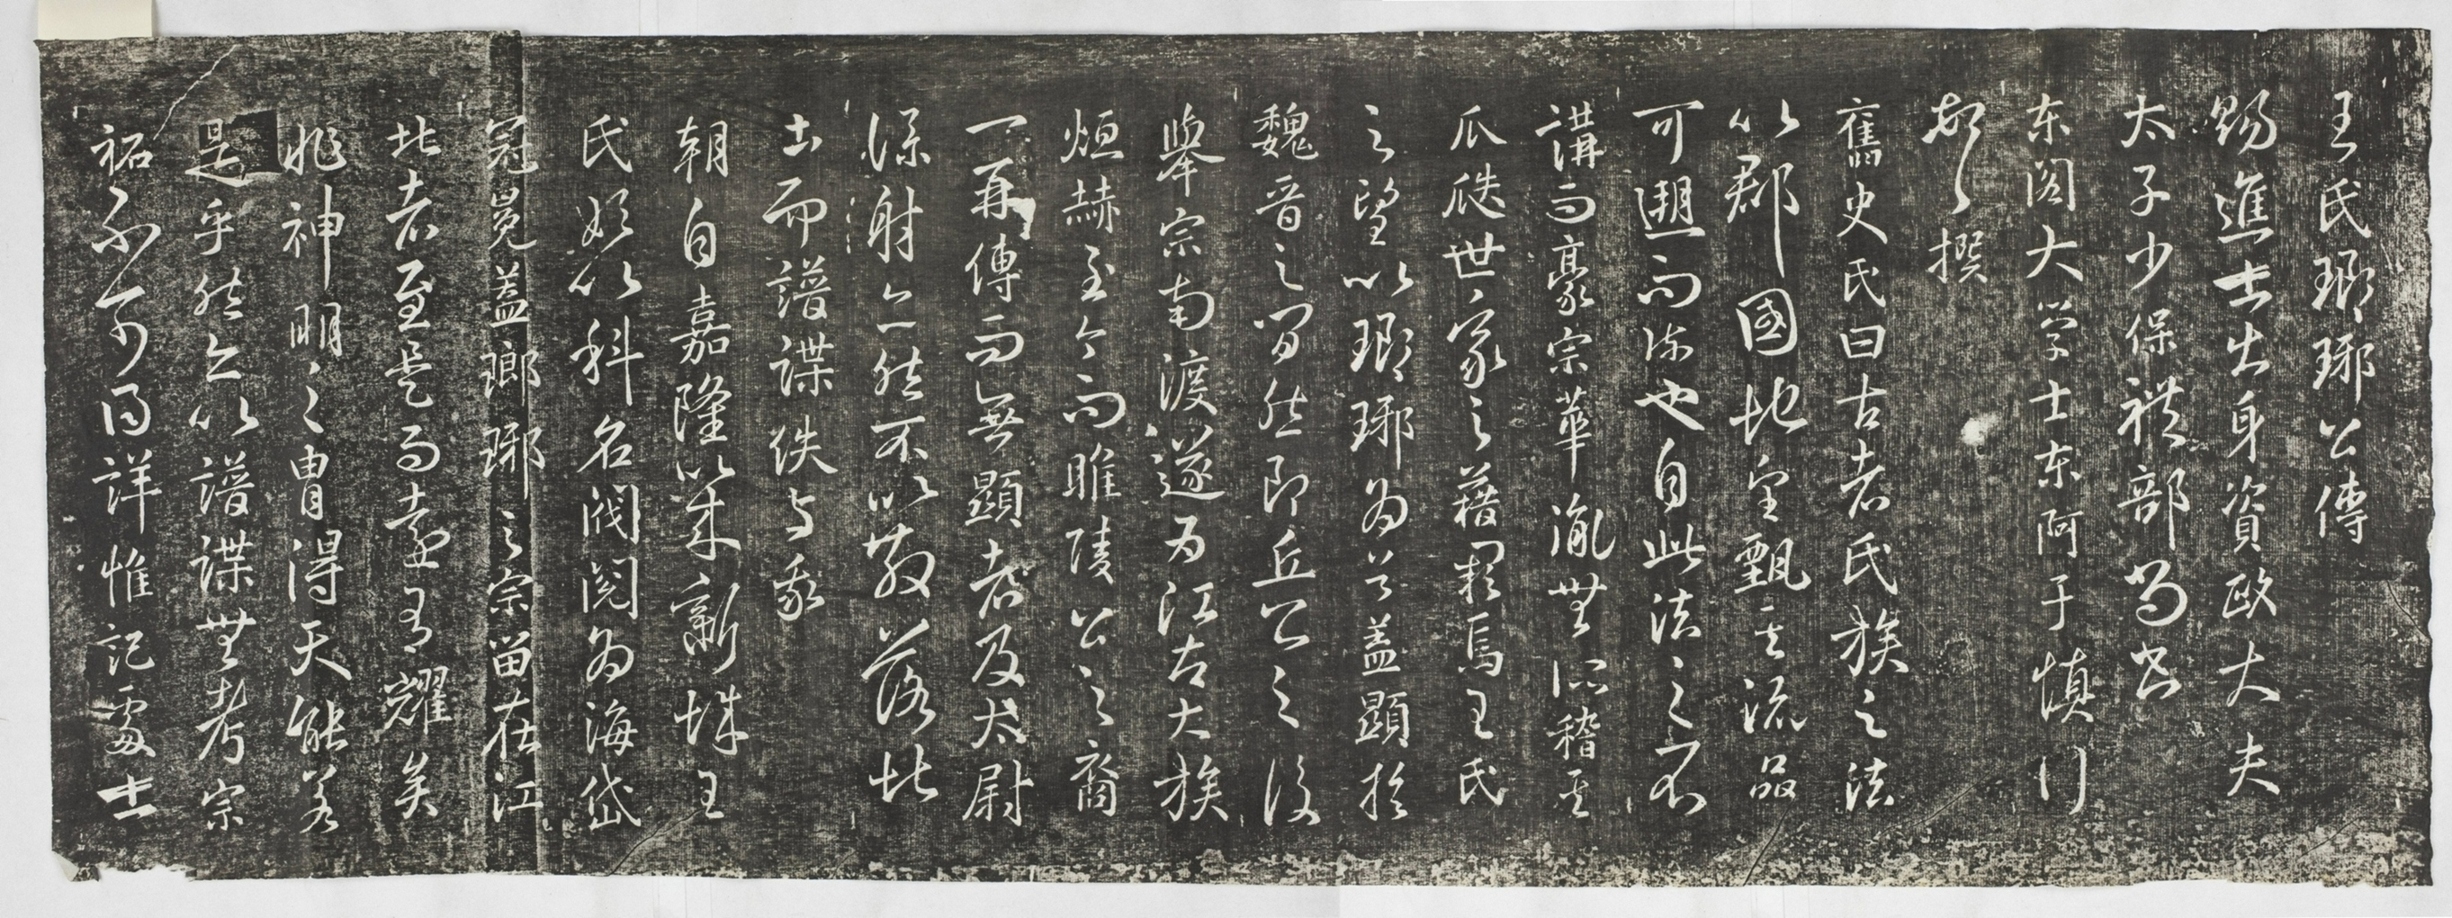 王氏瑯琊公傳
賜進士出身資政大夫
太子少保禮部尚書
东阁大学士东阿于慎行
頓首撰
舊史氏曰古者氏族之法
以郡國地望甄其流品
可遡而流也自此法之不
講而豪宗華胤無所稽其
瓜瓞世家之籍闕焉王氏
之望以瑯琊為首蓋顯於
魏晉之間然即丘公之後
舉宗南渡遂为江左大族
烜赫至今而睢陵公之裔
一再傳而無顯者及太尉
僕射亡然不以散落北
土而譜諜佚与我
朝自嘉隆以來新城王
氏始以科名閥閱为海岱
冠冕蓋瑯琊之宗留在江
北者至是而遠有耀矣
非神明之胄得天能若
是乎然亡以譜諜無考宗
祐不可得詳惟記處士